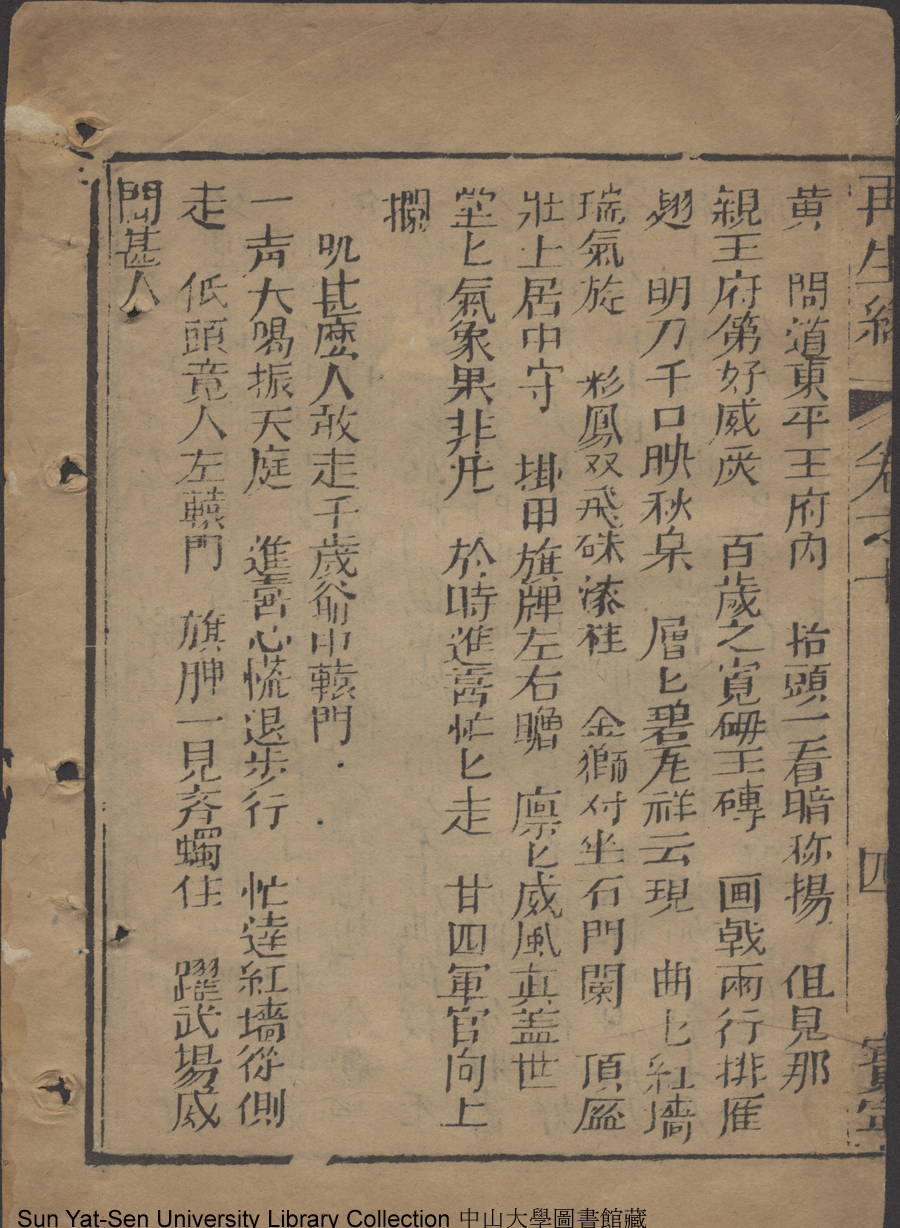 再生緣 卷之十 四 寶寧
黄 問道東平王府內 抬頭一看暗称揚 但見那
親王府第好威灰 百歲之寬碑王磚 画戟兩行排雁
翅 明刀千口映秋泉 層匕碧尾祥云現 曲匕紅墻
瑞氣旋 彩鳳双飛硃漆柱 金獅对坐石門闌 頂盔
壯士居中守 掛甲旗牌左右瞻 凛匕威風真盖世
堂匕氣象果非凡 於時進喜忙匕走 廿四軍官向上
攔
叽甚麽人敢走千歲爺中轅門
一声大喝振天庭 進喜心慌退步行 忙達紅墻從側
走 低頭竟人左轅門 旗胂一見齐蠋住 躍武場威
問甚人
Sun Yat-Sen University Library Collection 中山大學圖書館藏